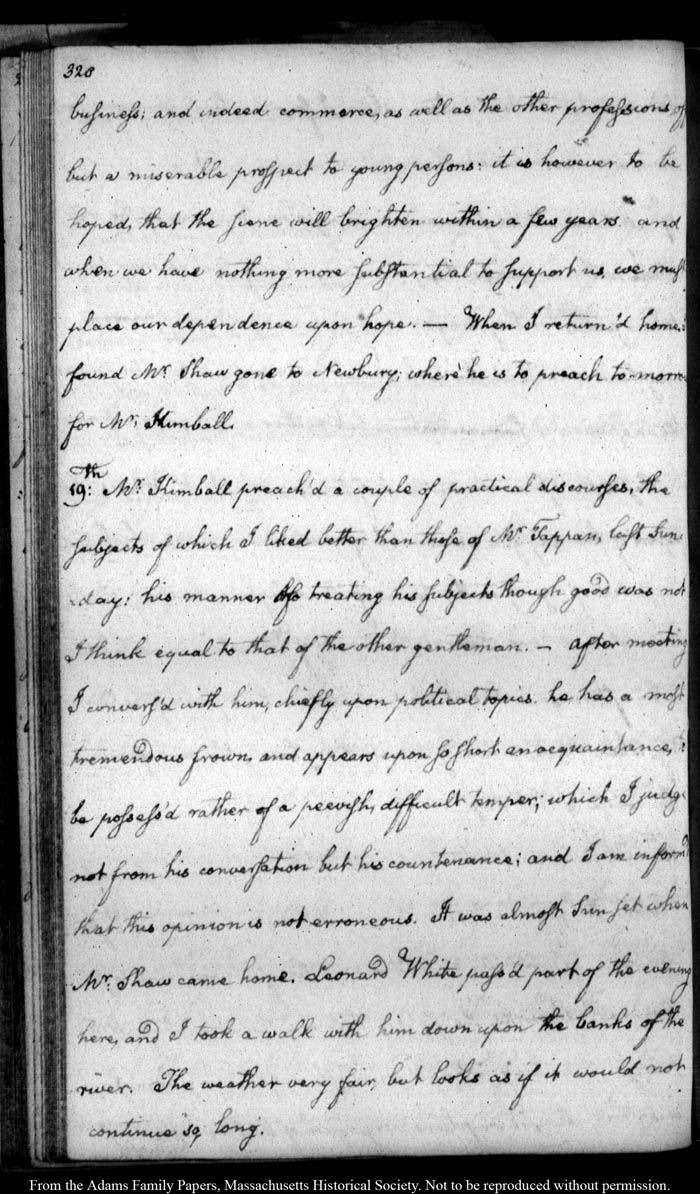 328
business; and indeed commerce, as well as the other professions
but a miserable prospect to young persons: it is however to be
hoped, that the scene will brighten within a few years and
when we have nothing more substantial to support us, we must
place our dependence upon hope. — When I return'd home,
found Mr. Shaw gone to Newbury; where he is to preach to-morro
for Mr. Kimball.
Th
19: Mr. Kimball preach'd a couple of practical discourses, the
subjects of which I liked better than those of Mr. Tappan, last Sun-
-day: his manner of treating his subjects though good was not
I think equal to that of the other gentleman. — After meeting
I convers'd with him, chiefly upon political topics. he has a most
tremendous frown, and appears upon so short an acquaintance,
be possess'd rather of a peevish, difficult temper; which I judge
not from his conversation but his countenance; and I am inform'd
that this opinion is not erroneous. It was almost Sun set when
Mr. Shaw came home. Leonard White pass'd part of the evening
here, and I took a walk with him down upon the banks of the
river. The weather very fair, but looks as if it would not
continue so, long.
From the Adams Family Papers, Massachusetts Historical Society. Not to be reproduced without permission.